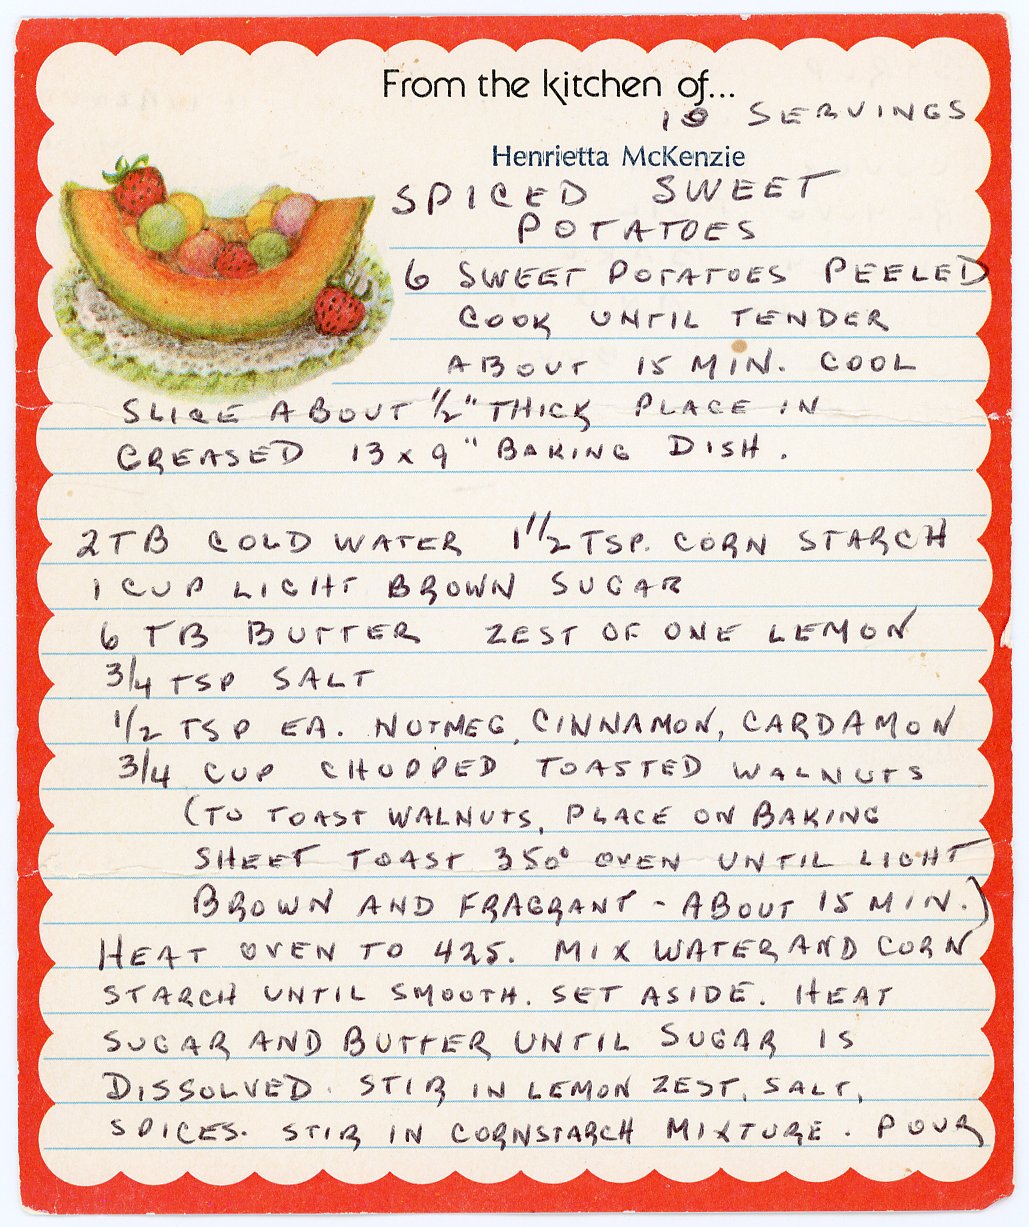 From the kitchen of...
10 SERVINGS
Henrietta McKenzie
SPICED SWEET
POTATOES
6 SWEET POTATOES PEELED
COOK UNTIL TENDER
ABOUT 15 MIN. COOL
SLICE ABOUT 1/2" THICK PLACE IN
GREASED 13 x 9" BAKING DISH.
2 TB COLD WATER 1 1/2 TSP. CORN STARCH
1 CUP LIGHT BROWN SUGAR
6 TB BUTTER ZEST OF ONE LEMON
3/4 TSP SALT
1/2 TSP EA. NUTMEG, CINNAMON, CARDAMON
3/4 CUP CHOPPED TOASTED WALNUTS
(TO TOAST WALNUTS, PLACE ON BAKING
SHEET TOAST 350° OVEN UNTIL LIGHT
BROWN AND FRAGRANT - ABOUT 15 MIN.)
HEAT OVEN TO 425. MIX WATER AND CORN
STARCH UNTIL SMOOTH. SET ASIDE. HEAT
SUGAR AND BUTTER UNTIL SUGAR IS
DISSOLVED. STIR IN LEMON ZEST, SALT,
SPICES. STIR IN CORNSTARCH MIXTURE. POUR